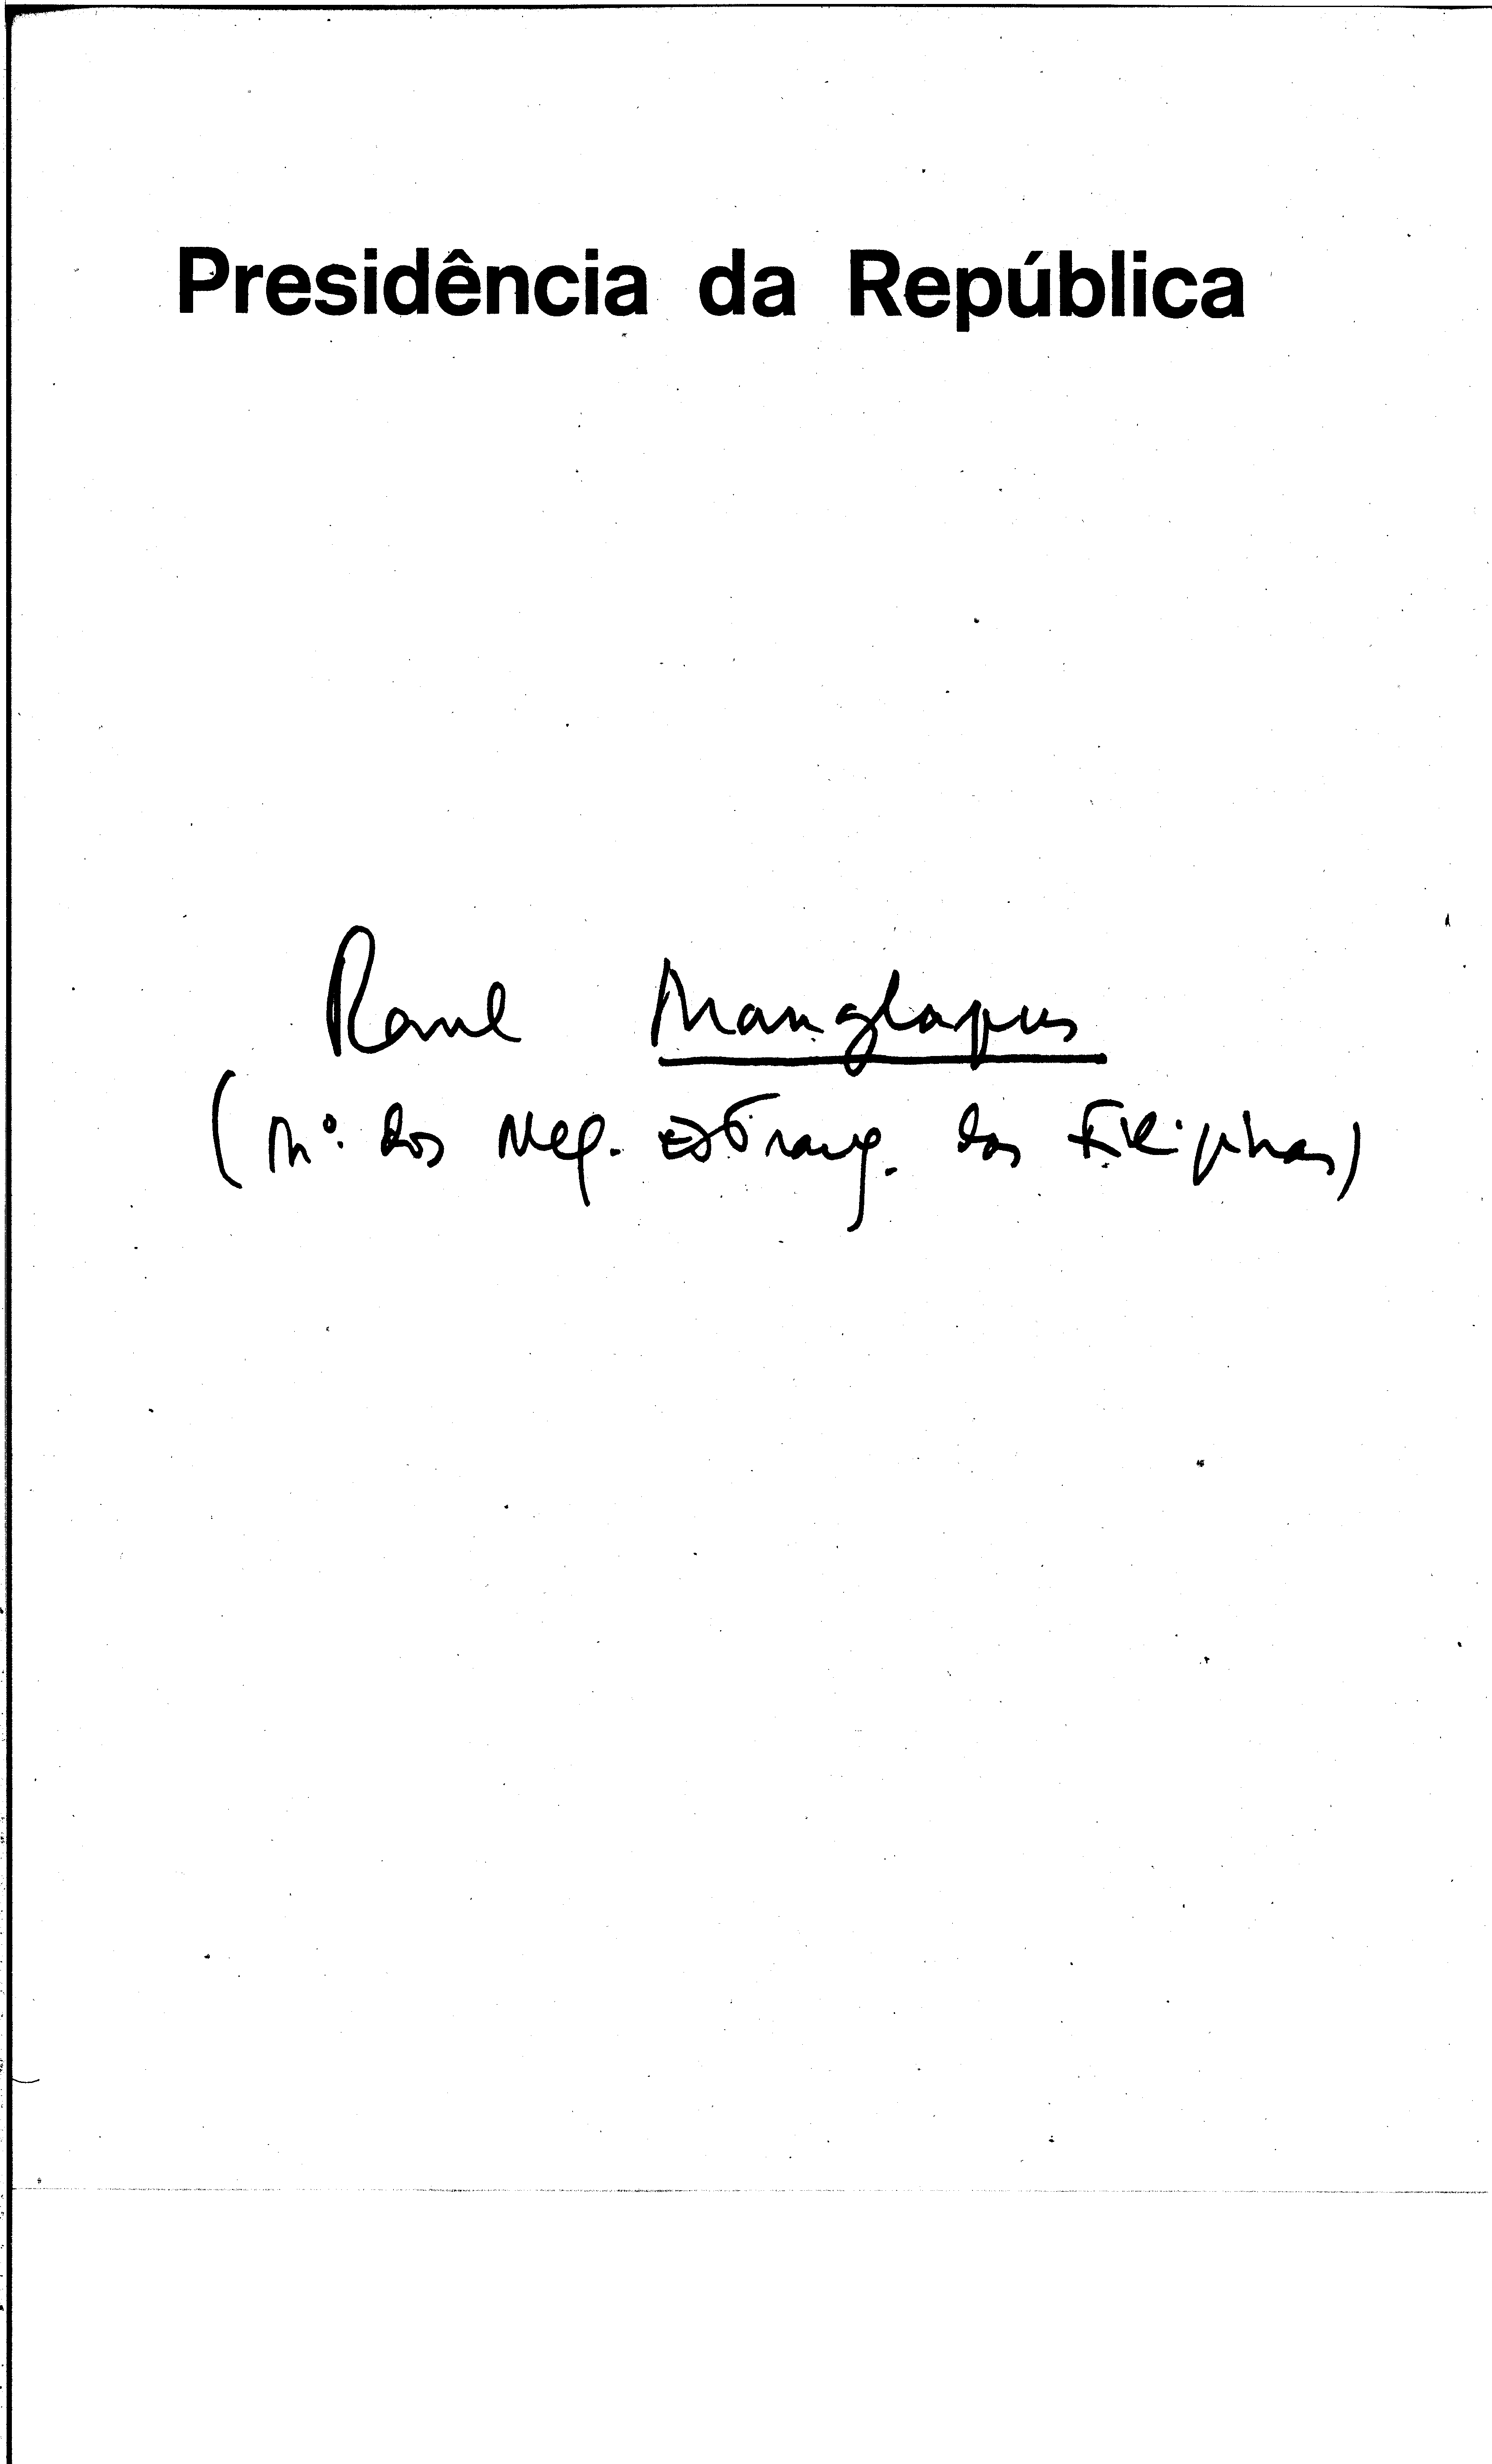 Presidência da República
Raul Manglapus
(Mº. dos Neg. Estrang. das Filipinas)